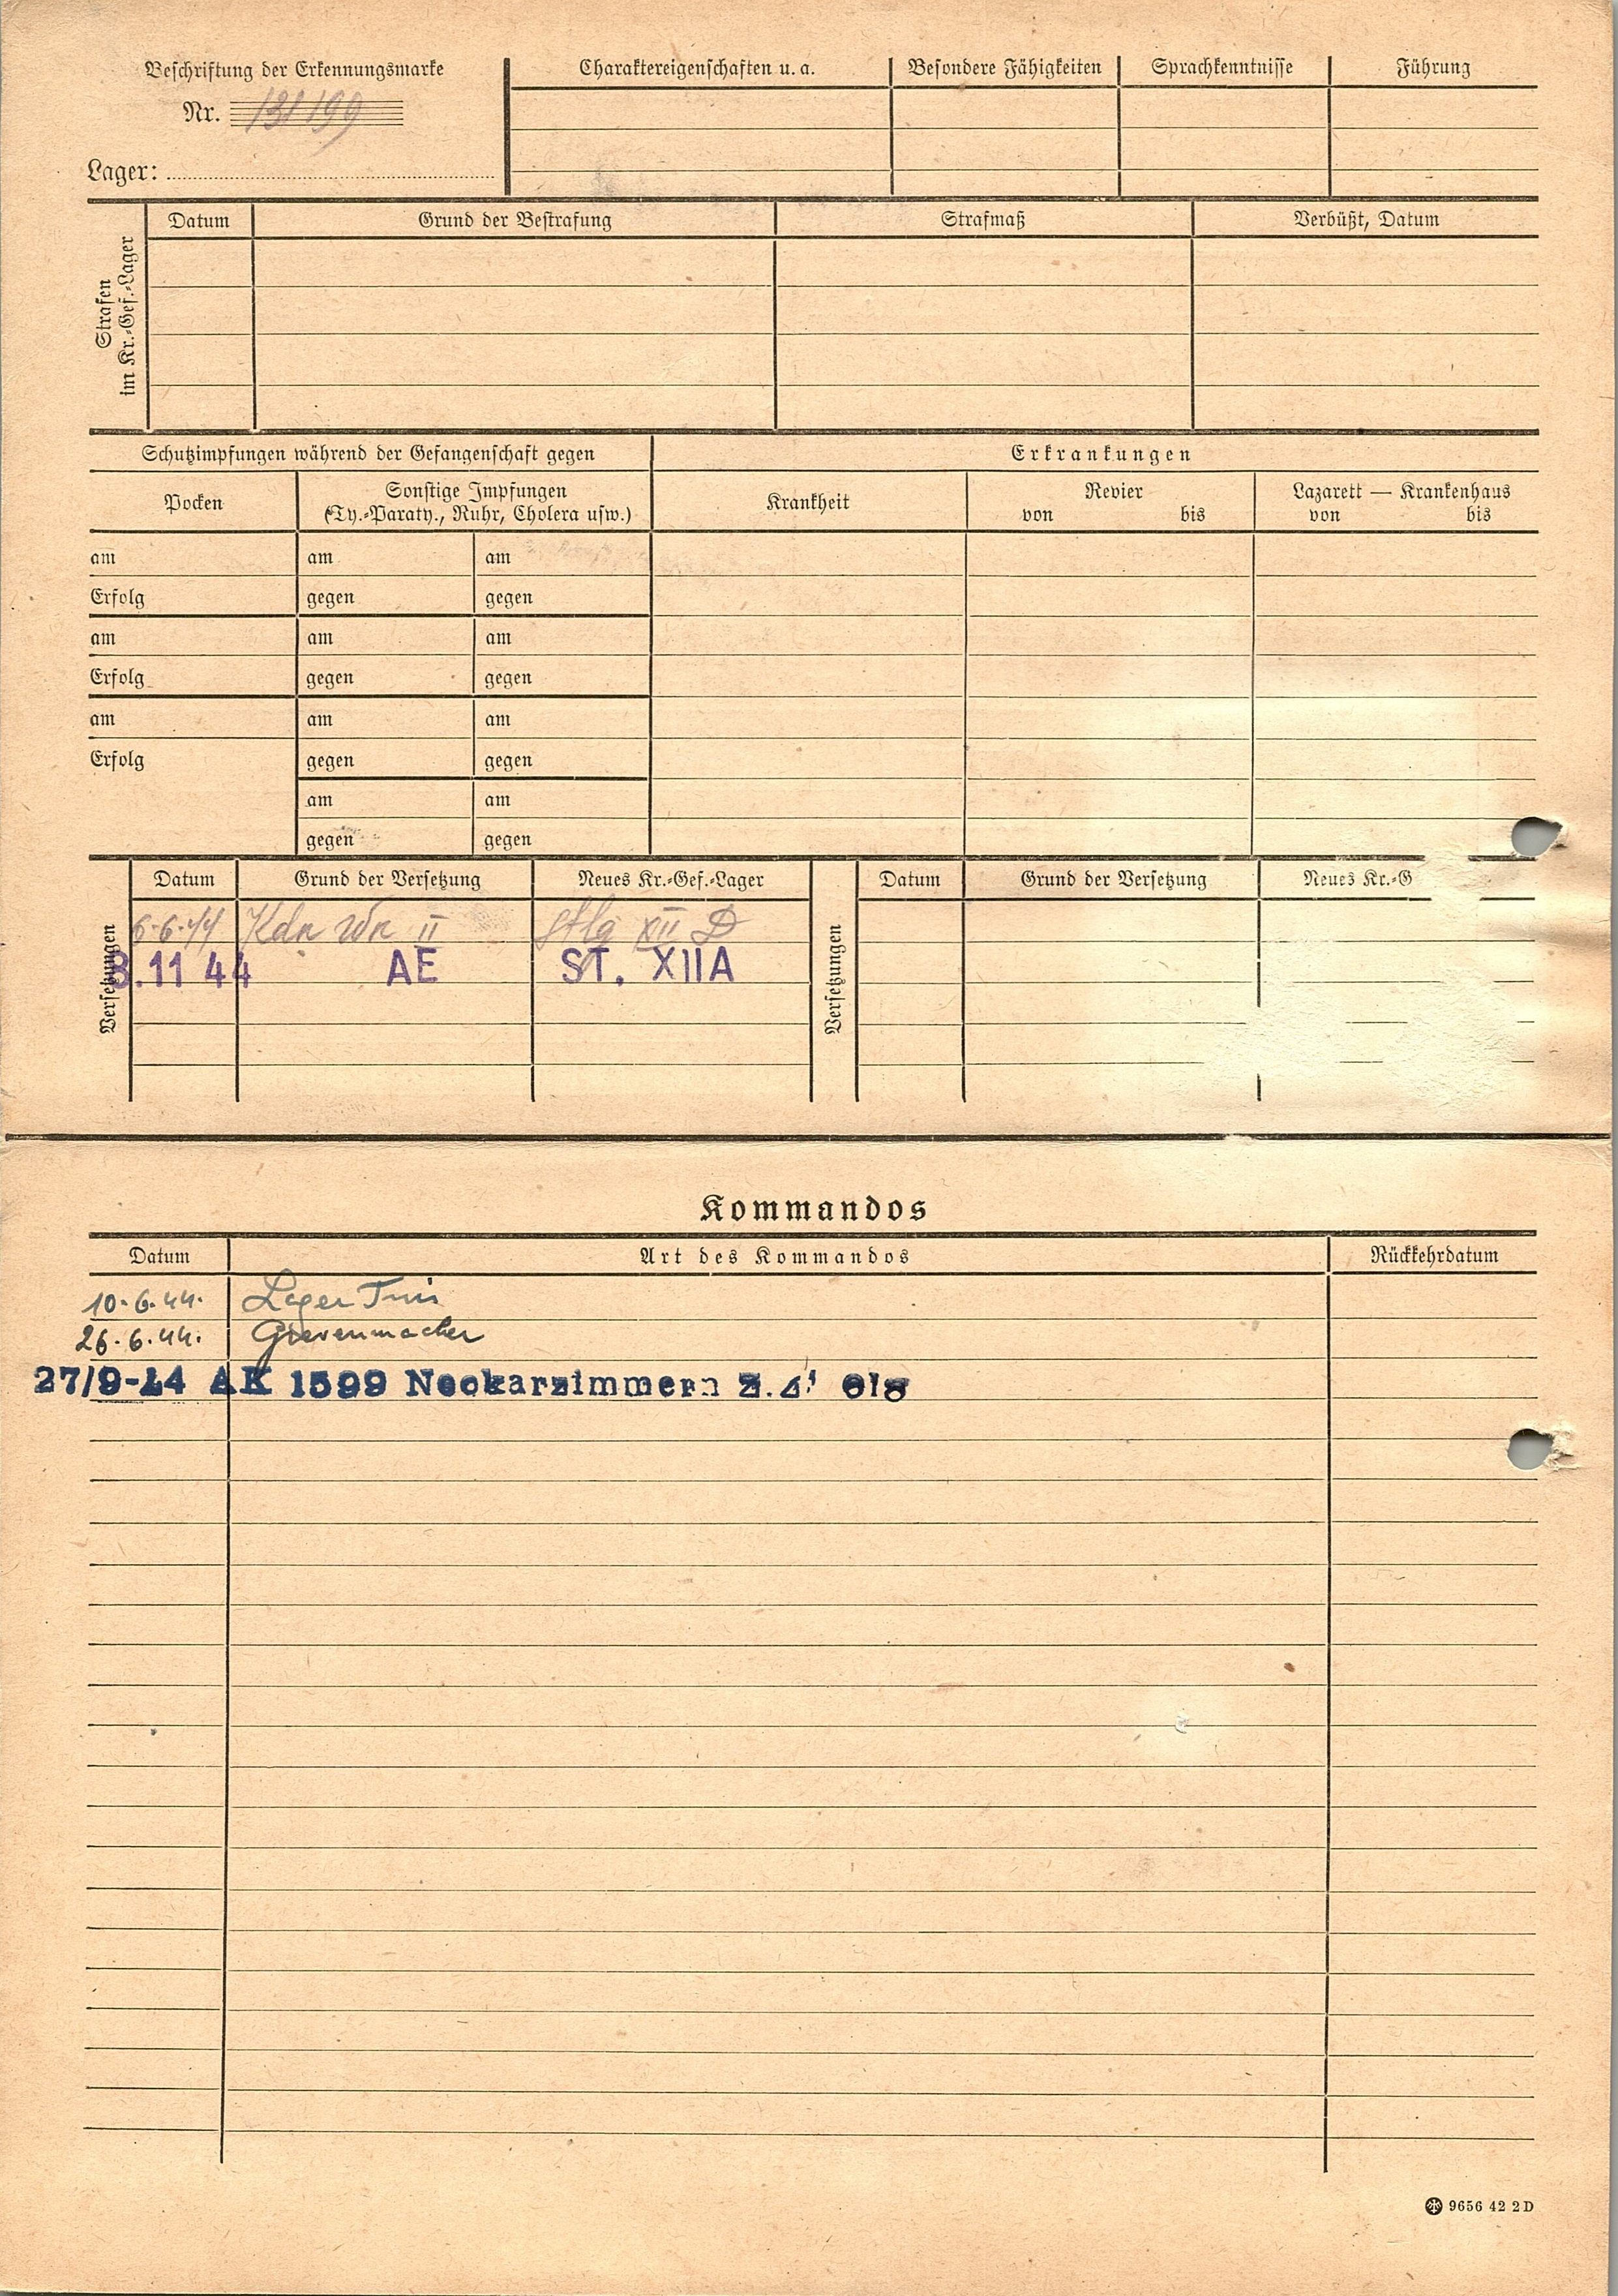 Beschriftung der Erkennungsmarke
Nr. 131199
Lager:
Charaktereigenschaften u. a.
Besondere Fähigkeiten
Sprachkenntnisse
Führung
Strafen
im Kr.-Gef.-Lager
Datum
Grund der Bestrafung
Strafmaß
Verbüßt, Datum
Schutzimpfungen während der Gefangenschaft gegen
Erkrankungen
Pocken
Sonstige Impfungen
(Ty.-Paraty., Ruhr, Cholera usw.)
Krankheit
Revier
von bis
Lazarett — Krankenhaus
von bis
am am am
Erfolg gegen gegen
am am am
Erfolg gegen gegen
am am am
Erfolg gegen gegen
am am
gegen gegen
Versetzungen
Datum Grund der Versetzung Neues Kr.-Gef.-Lager
6.6.44 Kdn Wn II Stlg XII D
8.11 44 AE ST. XIIA
Versetzungen
Datum Grund der Versetzung Neues Kr.-G
Kommandos
Datum Art des Kommandos Rückkehrdatum
10.6.44. Lager
26.6.44. Grevenmacher
27/9-44 AK 1599 Neckarzimmern
9656 42 2D